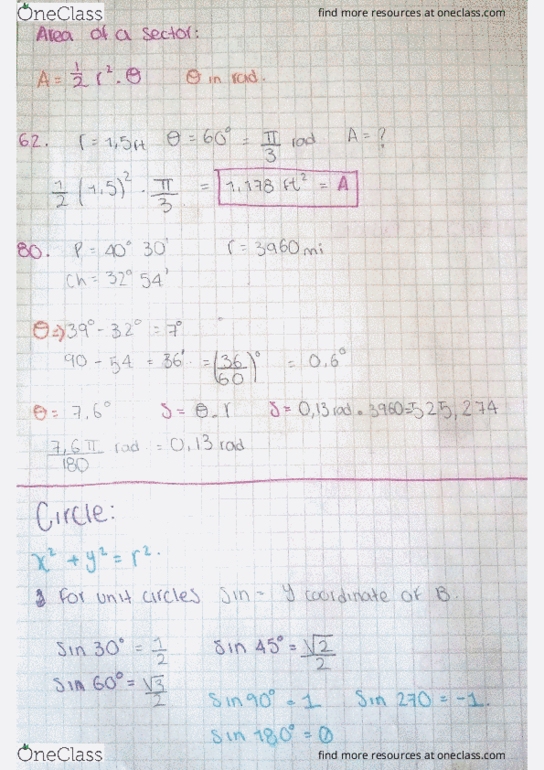 OneClass find more resources at oneclass.com
Area of a sector:
A = 1/2 r² · θ θ in rad.
62. r = 1,5 ft θ = 60° = π/3 rad A = ?
1/2 (1,5)² · π/3 = 1,178 ft² = A
80. P = 40° 30' r = 3960 mi
Ch = 32° 54'
θ ⇒ 39° - 32° = 7°
90 - 54 = 36' = (36/60)° = 0,6°
θ = 7,6° s = θ · r s = 0,13 rad · 3960 = 525,274
7,6π/180 rad = 0,13 rad
Circle:
x² + y² = r².
for unit circles Sin = y coordinate of B.
Sin 30° = 1/2 Sin 45° = √2/2
Sin 60° = √3/2
Sin 90° = 1 Sin 270 = -1.
Sin 180° = 0
OneClass find more resources at oneclass.com